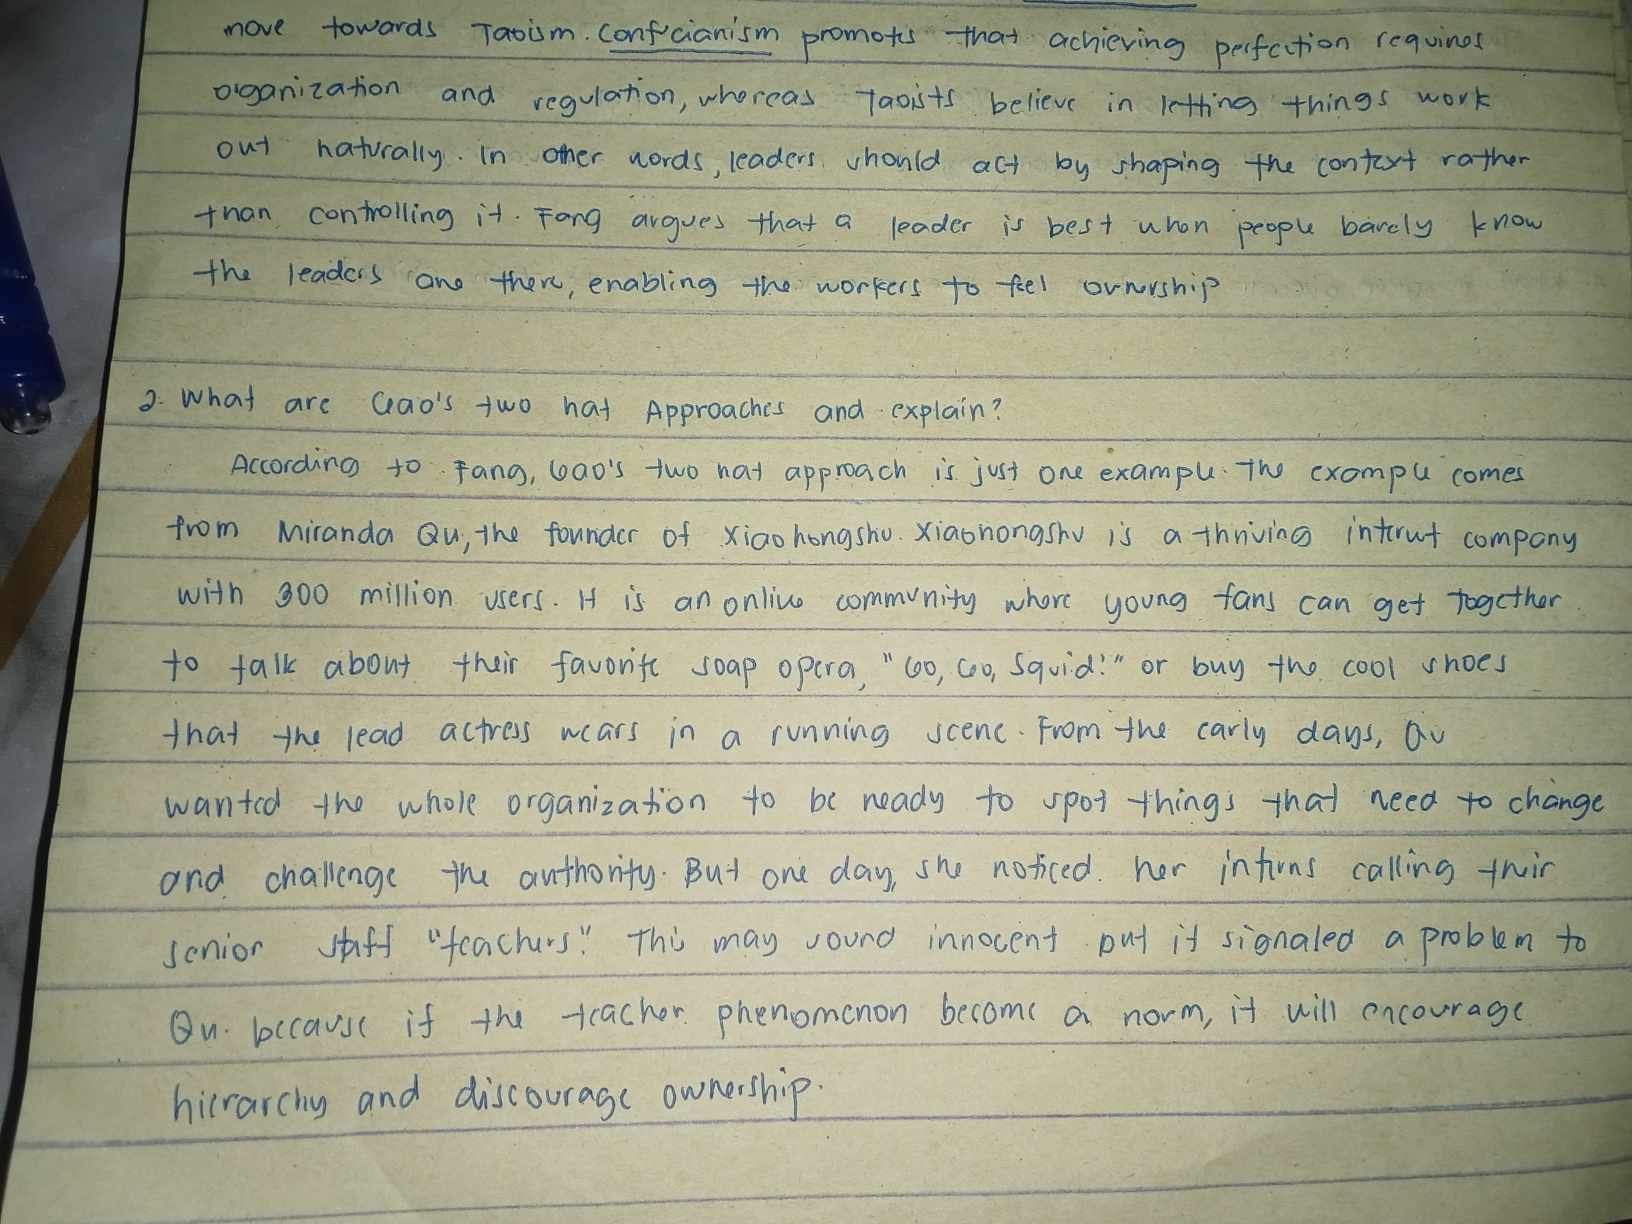 move towards Taoism. Confucianism promotes that achieving perfection requires
organization and regulation, whereas Taoists believe in letting things work
out naturally. In other words, leaders should act by shaping the context rather
than controlling it. Fang argues that a leader is best when people barely know
the leaders are there, enabling the workers to feel ownership
2. What are Gao's two hat Approaches and explain?
According to Fang, Gao's two hat approach is just one example. The example comes
from Miranda Qu, the founder of Xiaohongshu. Xiaohongshu is a thriving internet company
with 300 million users. It is an online community where young fans can get together
to talk about their favorite soap opera, "Go, Go, Squid!" or buy the cool shoes
that the lead actress wears in a running scene. From the early days, Qu
wanted the whole organization to be ready to spot things that need to change
and challenge the authority. But one day, she noticed her interns calling their
senior staff "teachers". This may sound innocent but it signaled a problem to
Qu. because if the teacher phenomenon become a norm, it will encourage
hierarchy and discourage ownership.